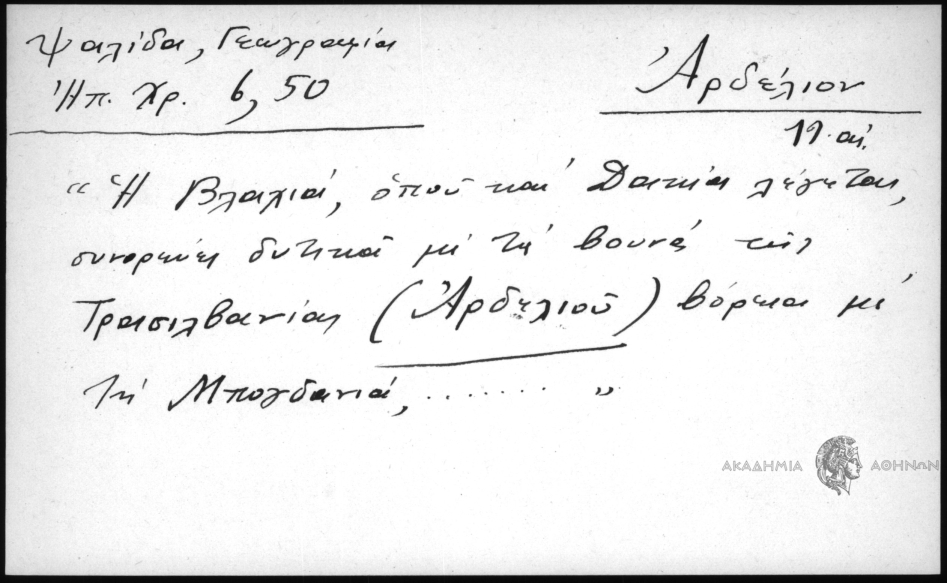 Ψαλίδα, Γεωγραφία
Ἠπ. Χρ. 6, 50
Ἀρδέλιον
19 αἰ.
"Ἡ Βλαχιά, ὁποῦ καί Δακία λέγεται,
συνορεύει δυτικά μέ τά βουνά τῆς
Τρασιλβανίας (Ἀρδελιοῦ) βόρεια μέ
τή Μπογδανιά, ........ "
ΑΚΑΔΗΜΙΑ ΑΘΗΝΩΝ